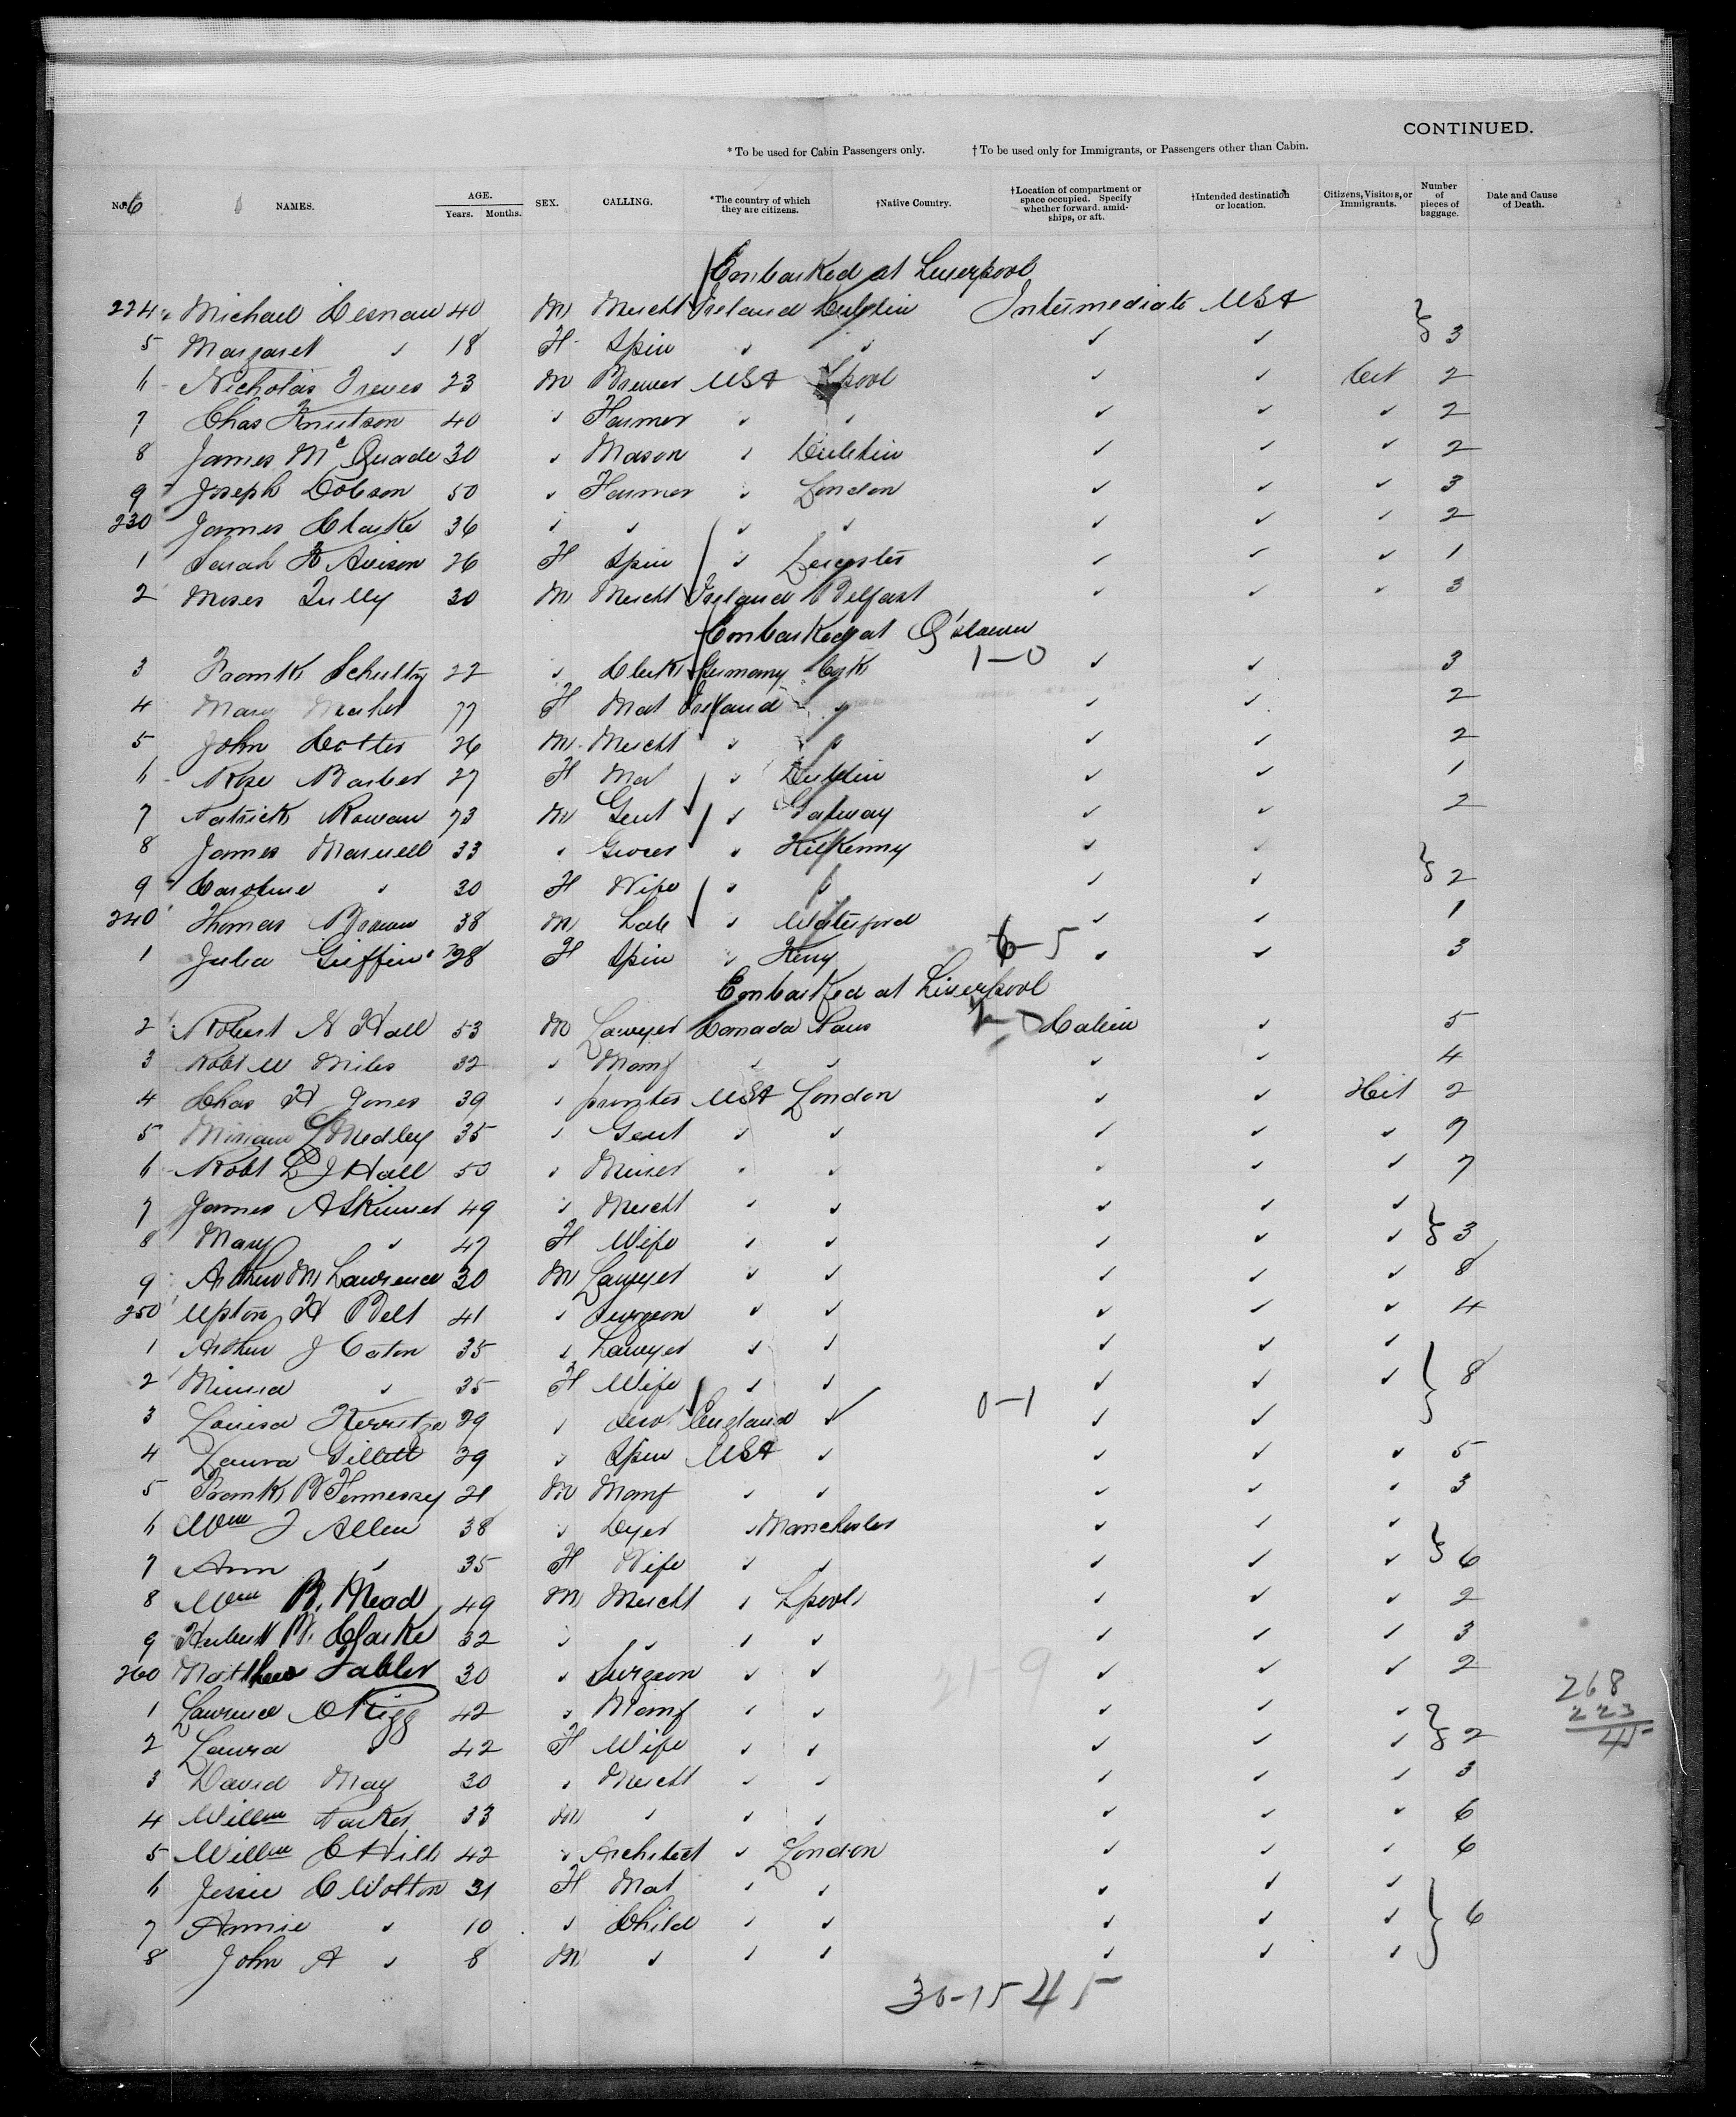 CONTINUED.
* To be used for Cabin Passengers only. † To be used only for Immigrants, or Passengers other than Cabin.
No. 6 NAMES. AGE. Years. Months. SEX. CALLING. *The country of which they are citizens. †Native Country. †Location of compartment or space occupied. Specify whether forward, amidships, or aft. †Intended destination or location. Citizens, Visitors, or Immigrants. Number of pieces of baggage. Date and Cause of Death.
Embarked at Liverpool
224 Michael 40 M Mercht Ireland Dublin Intermediate USA
5 Margaret " 18 F Spin " " " " } 3
6 Nicholas 23 M Brewer USA Lpool " " Cit 2
7 Chas Knutson 40 " Farmer " " " " " 2
8 James Mc Quade 30 " Mason " Dublin " " " 2
9 Joseph Dobson 50 " Farmer " London " " " 3
230 James Clarke 36 " " " " " " " 2
1 Sarah 26 F Spin " Leicester " " " 1
2 Moses Tully 30 M Mercht Ireland Belfast " " " 3
Embarked at Q'stown
1-0
3 Frank Schultz 22 " Clerk Germany Cork " " 3
4 Mary 77 F Mat Ireland " " " 2
5 John Cotter 26 M Mercht " " " " 2
6 Rose Barber 27 F Mat " Dublin " " 1
7 Patrick Rowan 73 M Gent " Galway " " 2
8 James Maxwell 33 " Grocer " Kilkenny " "
9 Caroline " 30 F Wife " " " " } 2
240 Thomas Brown 38 M Lab " Waterford " " 1
1 Julia Griffin 28 F Spin " Kerry 6-5 " " 3
Embarked at Liverpool
2 Robert N Hall 53 M Lawyer Canada Paris Cabin " 5
3 Robt W Miles 32 " Manf " " " " 4
4 Chas H Jones 39 " printer USA London " " Cit 2
5 Medley 35 " Gent " " " " " 7
6 Robt L J Hall 50 " " " " " " 7
7 James A Skinner 49 " Mercht " " " " "
8 Mary " 47 F Wife " " " " " } 3
9 Arthur M Lawrence 30 M Lawyer " " " " " 8
250 Upton H Belt 41 " Surgeon " " " " " 4
1 Arthur J Eaton 35 " Lawyer " " " " "
2 " 35 F Wife " " " " " } 8
3 Louisa 29 " England " 0-1 " "
4 Laura Gillett 29 " Spin USA " " " " 5
5 Frank B Hennessy 21 M Manf " " " " " 3
6 Wm J Allen 38 " Dyer " Manchester " " "
7 Ann " 35 F Wife " " " " " } 6
8 Wm B. Mead 49 M Mercht " Lpool " " " 2
9 Hubert W. Clarke 32 " " " " " " " 3
260 Matthew 30 " Surgeon " " " " " 2
21 9
268
223
45
1 Lawrence C Rigg 42 " Manf " " " " "
2 Laura " 42 F Wife " " " " " } 2
3 David May 30 " Mercht " " " " " 3
4 Willm Parker 33 M " " " " " " 6
5 Willm C Hill 42 " Architect " London " " " 6
6 Jessie C Wolton 31 F Mat " " " " "
7 Annie " 10 " Child " " " " " } 6
8 John A " 8 M " " " " " "
30-15 45